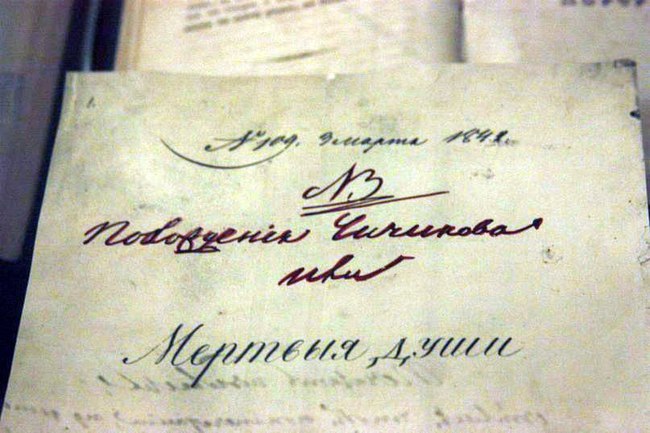 1.
№ 109. 9 марта 1842.
NB
Похожденія Чичикова
или
Мертвыя души